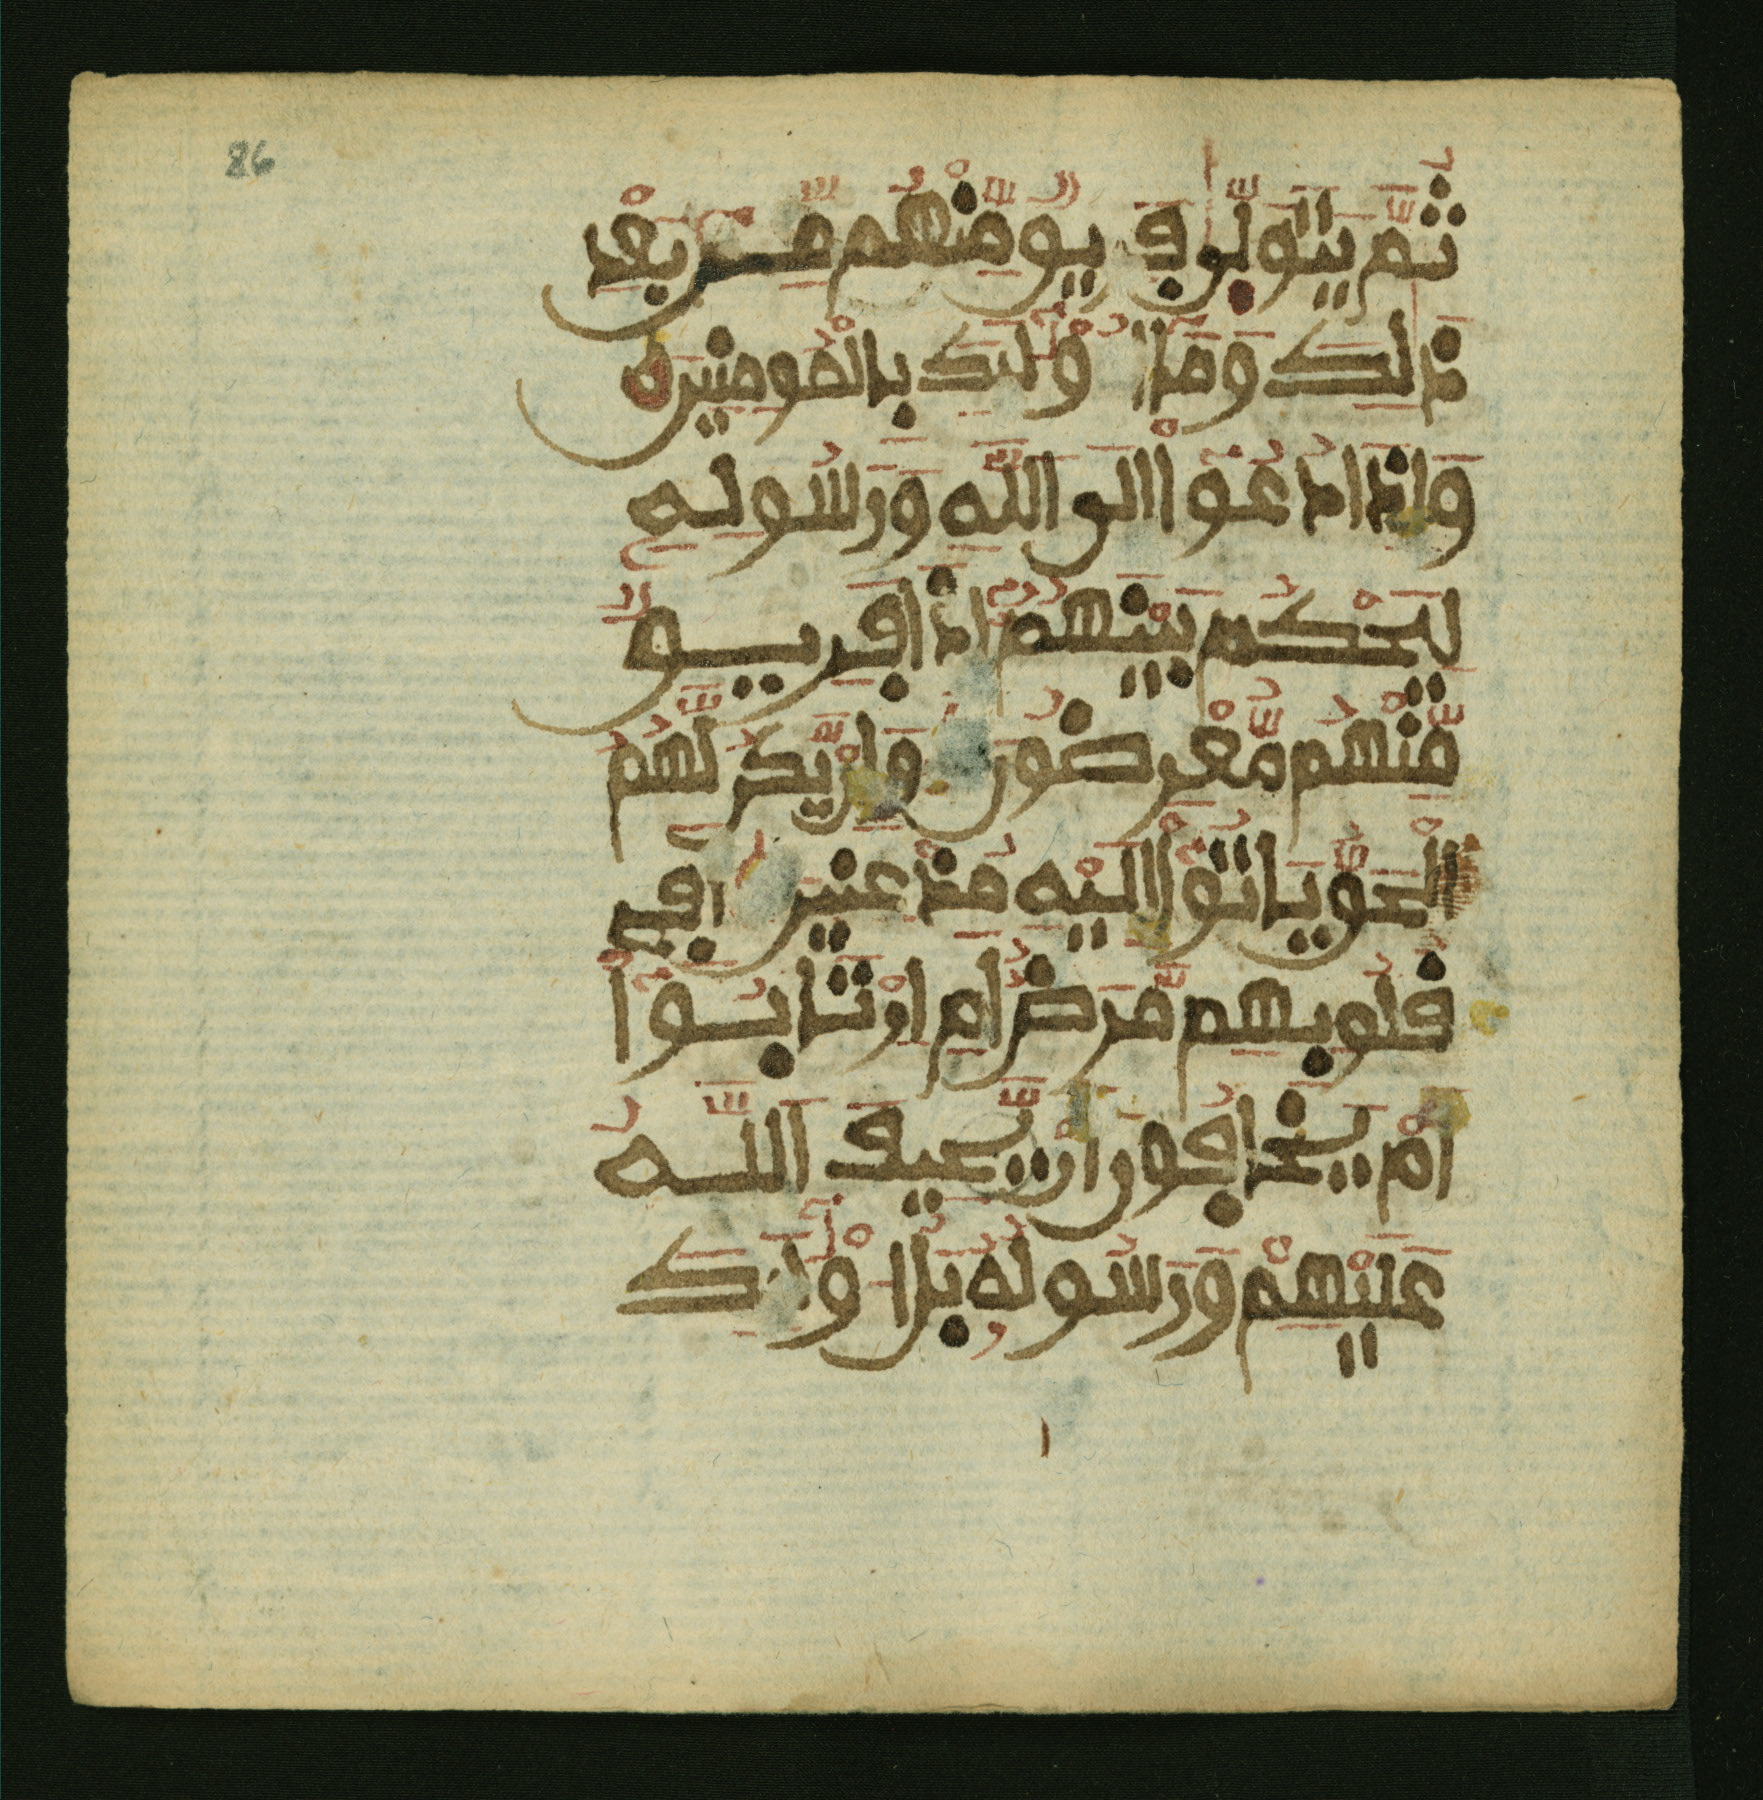 86
ثُمَّ يَتَوَلّٜى فَرِيقٌ مِّنْهُم مِّنۢ بَعْدِ
ذَٰلِكَ وَمَآ أُوْلَٰٓئِكَ بِالْمُومِنِينَ
وَإِذَا دُعُوٓاْ إِلَى اللَّهِ وَرَسُولِهِۦ
لِيَحْكُمَ بَيْنَهُمُۥٓ إِذَا فَرِيقٌ
مِّنْهُم مُّعْرِضُونَ وَإِنْ يَّكُن لَّهُمُ
الْحَقُّ يَاتُوٓاْ إِلَيْهِ مُذْعِنِينَ أَفِى
قُلُوبِهِم مَّرَضٌ أَمِ ارْتَابُوٓاْ
أَمْ يَخَافُونَ أَنْ يَّحِيفَ اللَّهُ
عَلَيْهِمْ وَرَسُولُهُۥ بَلُ اوْلَٰٓئِكَ